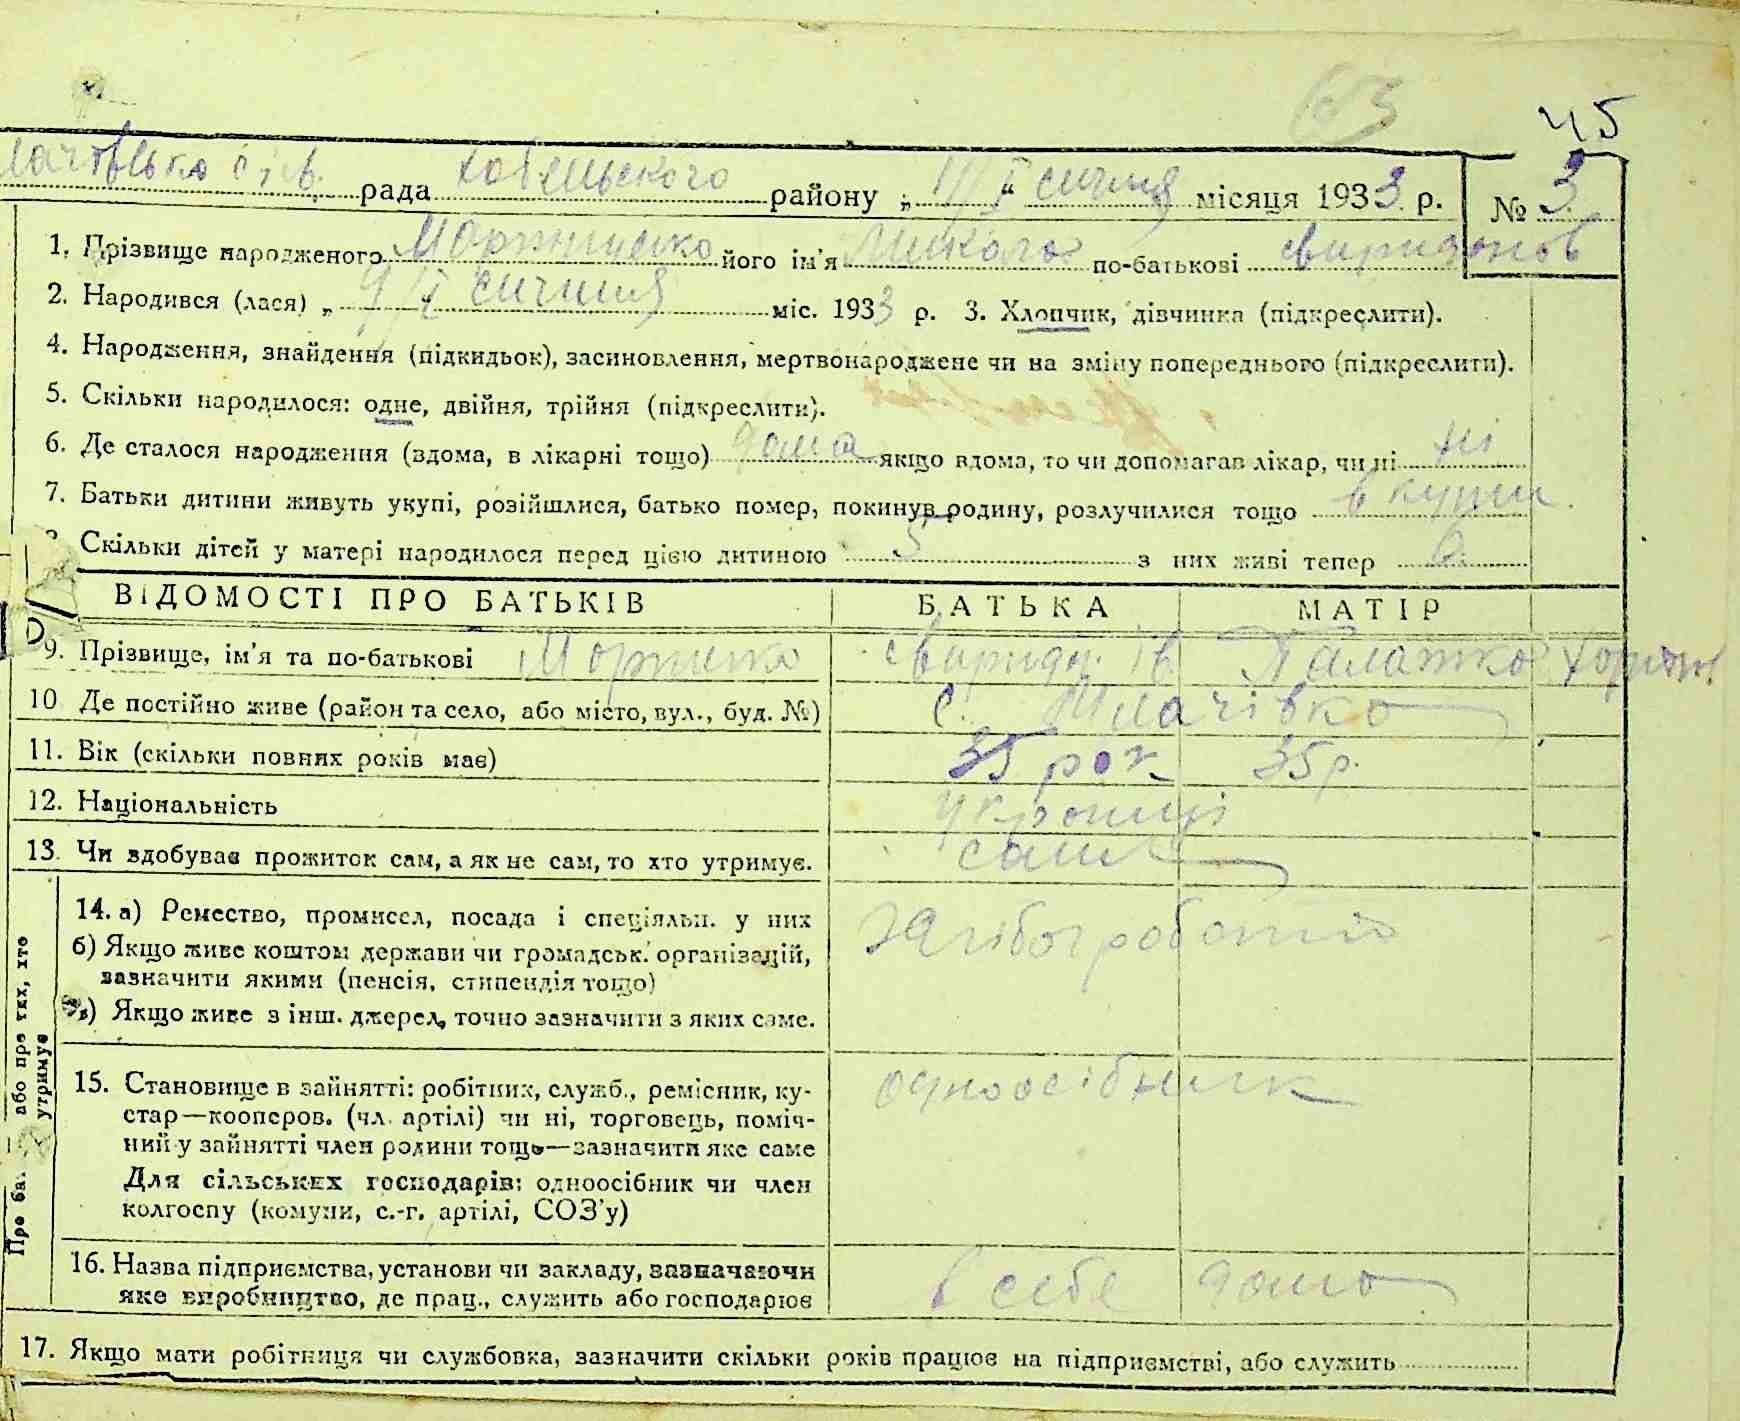 63
45
рада району „ 11/I " січня місяця 1933 р. № 3
1. Прізвище народженого його ім'я Микола по-батькові Свиридонов
2. Народився (лася) „ 9/I " січня міс. 1933 р. 3. Хлопчик, дівчинка (підкреслити).
4. Народження, знайдення (підкидьок), засиновлення, мертвонароджене чи на зміну попереднього (підкреслити).
5. Скільки народилося: одне, двійня, трійня (підкреслити).
6. Де сталося народження (вдома, в лікарні тощо) дома якщо вдома, то чи допомагав лікар, чи ні ні
7. Батьки дитини живуть укупі, розійшлися, батько помер, покинув родину, розлучилися тощо вкупи.
Скільки дітей у матері народилося перед цією дитиною 5 з них живі тепер 6.
ВІДОМОСТІ ПРО БАТЬКІВ БАТЬКА МАТІР
9. Прізвище, ім'я та по-батькові Свирид. Ів. Палажка
10 Де постійно живе (район та село, або місто, вул., буд. №) с. Млачівка
11. Вік (скільки повних років має) 35 рок 35 р.
12. Національність україні
13. Чи здобуває прожиток сам, а як не сам, то хто утримує. сами
Про ба. або про тих, хто утримує
14. а) Ремество, промисел, посада і спеціяльн. у них
б) Якщо живе коштом держави чи громадськ. організацій,
зазначити якими (пенсія, стипендія тощо)
в) Якщо живе з інш. джерел, точно зазначити з яких саме.
хліборобство
15. Становище в зайнятті: робітник, служб., ремісник, ку-
стар—кооперов. (чл. артілі) чи ні, торговець, поміч-
ний у зайнятті член родини тощо—зазначити яке саме
Для сільських господарів: одноосібник чи член
колгоспу (комуни, с.-г. артілі, СОЗ'у)
одноосібник
16. Назва підприємства, установи чи закладу, зазначаючи
яке виробництво, де прац., служить або господарює
в себе дома
17. Якщо мати робітниця чи службовка, зазначити скільки років працює на підприємстві, або служить